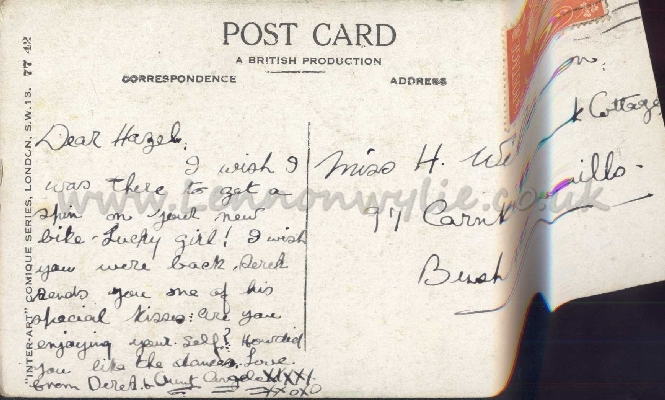 POST CARD
A BRITISH PRODUCTION
CORRESPONDENCE
ADDRESS
"INTER-ART" COMIQUE SERIES, LONDON, S.W.13. 7742
Dear Hazel,
I wish I
was there to get a
spin on your new
bike. Lucky girl! I wish
you were back. Derek
sends you one of his
special kisses. Are you
enjoying your self? How did
you like the dance. Love
from Derek & Aunt Angela XXXX
XXOXO
Miss H. Wi
k Cottage
97 Carnk ills.
Bush
www.Lennonwylie.co.uk